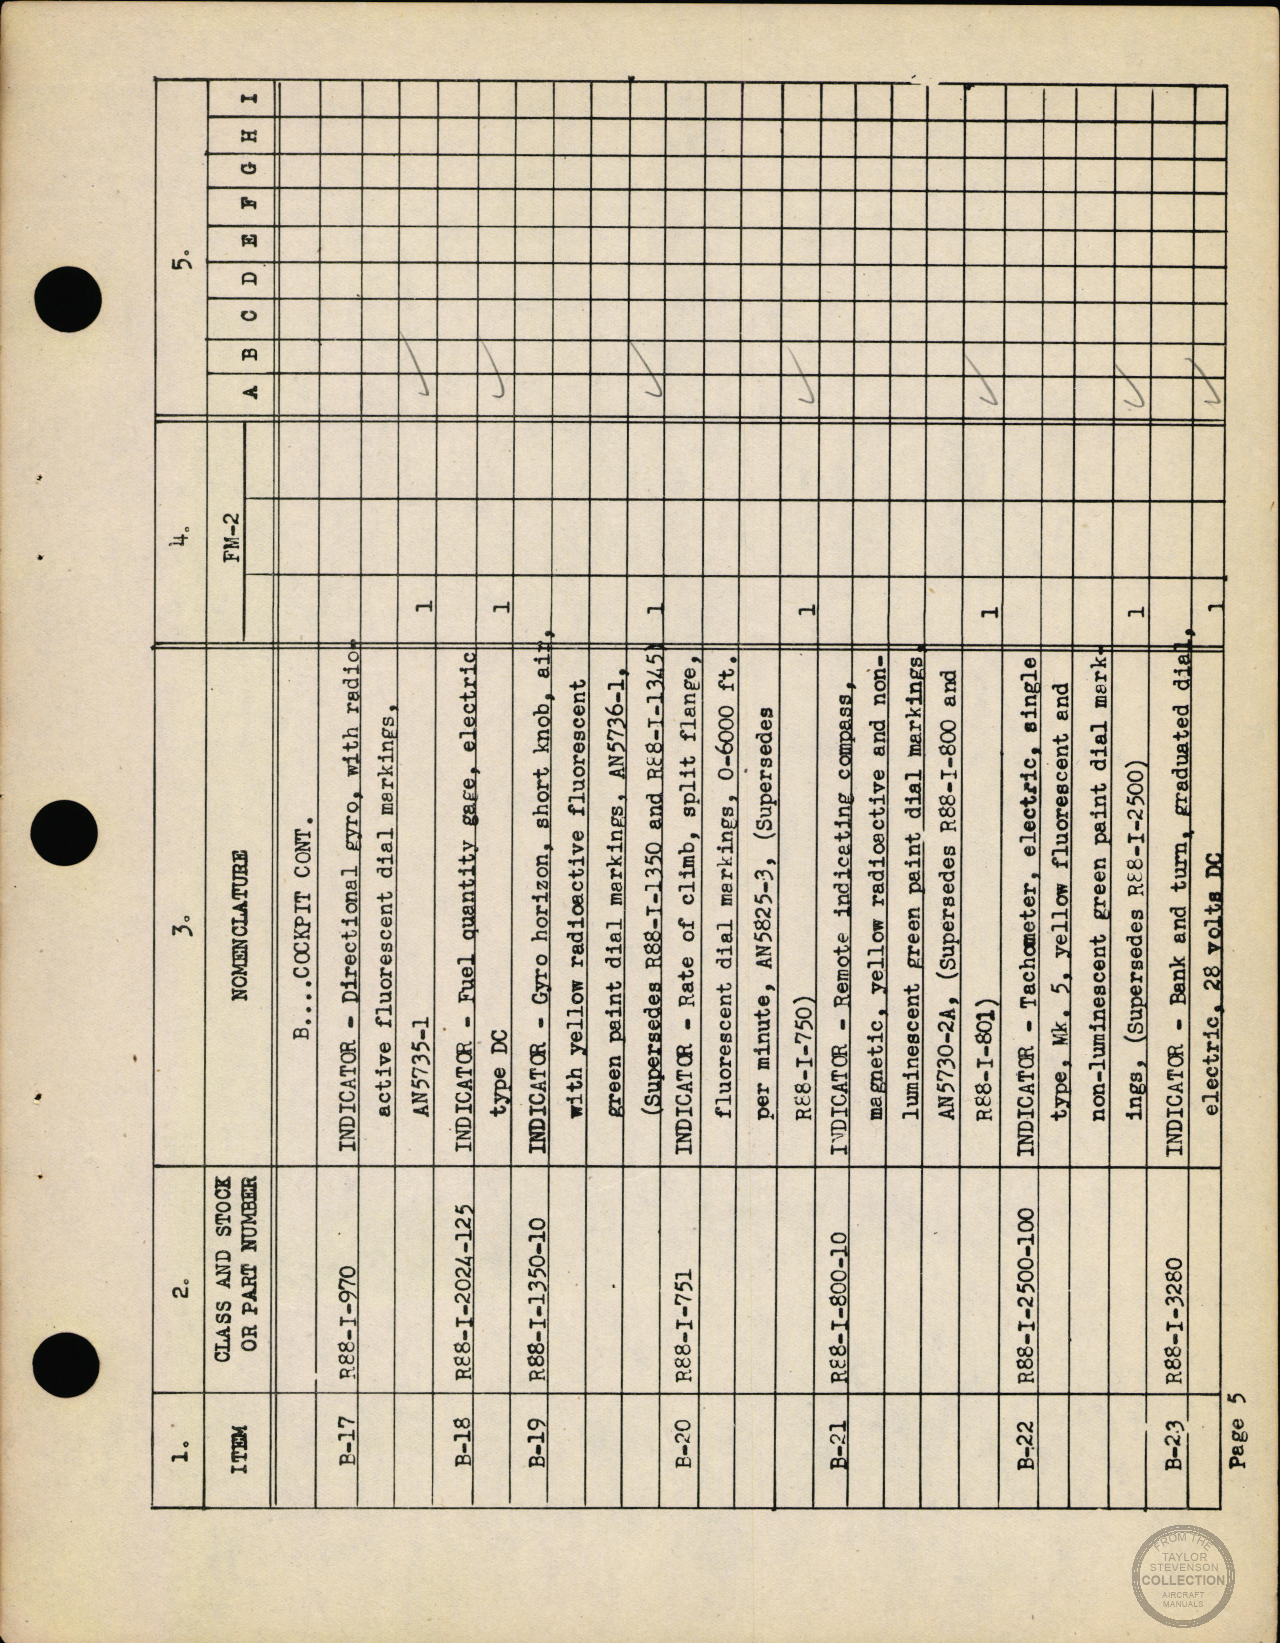 1. 2. 3. 4. 5.
ITEM CLASS AND STOCK OR PART NUMBER NOMENCLATURE FM-2 A B C D E F G H I
B...COCKPIT CONT.
B-17 R88-I-970 INDICATOR - Directional gyro, with radio-
active fluorescent dial markings,
AN5735-1 1
B-18 R88-I-2024-125 INDICATOR - Fuel quantity gage, electric
type DC 1
B-19 R88-I-1350-10 INDICATOR - Gyro horizon, short knob, air,
with yellow radioactive fluorescent
green paint dial markings, AN5736-1,
(Supersedes R88-I-1350 and R88-I-1345) 1
B-20 R88-I-751 INDICATOR - Rate of climb, split flange,
fluorescent dial markings, 0-6000 ft.
per minute, AN5825-3, (Supersedes
R88-I-750) 1
B-21 R88-I-800-10 INDICATOR - Remote indicating compass,
magnetic, yellow radioactive and non-
luminescent green paint dial markings,
AN5730-2A, (Supersedes R88-I-800 and
R88-I-801) 1
B-22 R88-I-2500-100 INDICATOR - Tachometer, electric, single
type, Mk. 5, yellow fluorescent and
non-luminescent green paint dial mark-
ings, (Supersedes R88-I-2500) 1
B-23 R88-I-3280 INDICATOR - Bank and turn, graduated dial,
electric, 28 volts DC 1
Page 5
FROM THE
TAYLOR
STEVENSON
COLLECTION
AIRCRAFT
MANUALS